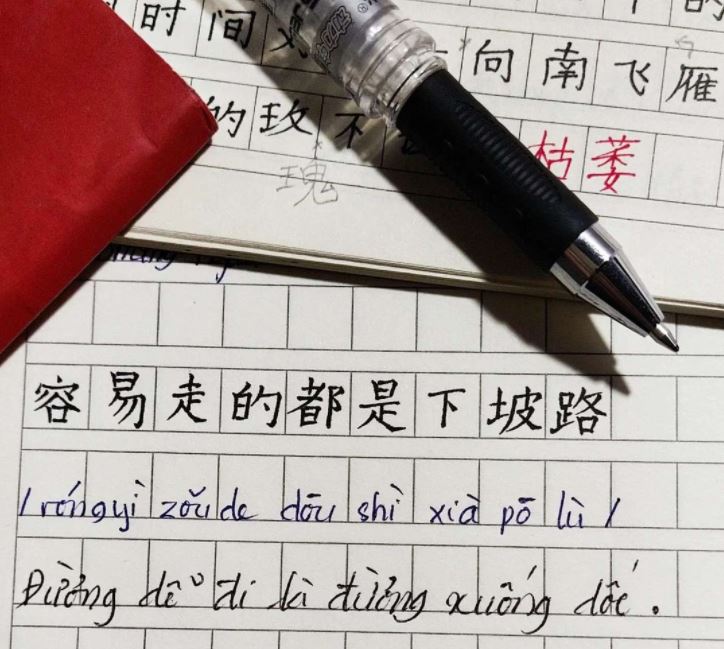 时间
向南飞雁
的玫不
枯萎
瑰
容易走的都是下坡路
/róngyì zǒu de dōu shì xià pō lù/
Đường dễ đi là đường xuống dốc.